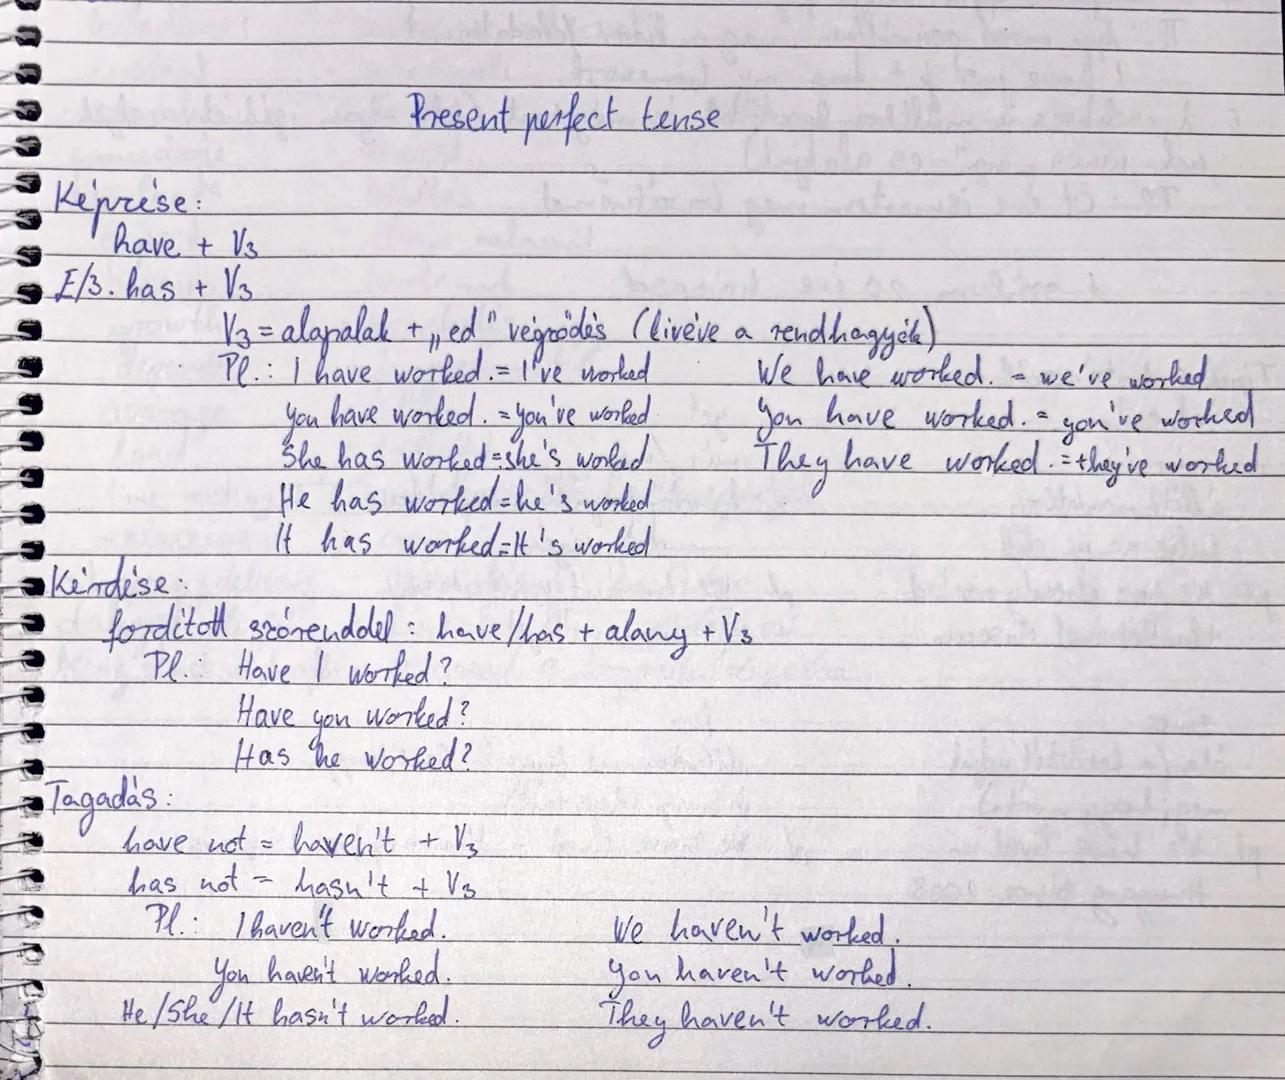 Present perfect tense
Képzése:
have + V3
E/3. has + V3
V3 = alapalak + „ed" végződés (kivéve a rendhagyók)
Pl.: I have worked. = I've worked We have worked. = we've worked
You have worked. = you've worked You have worked. = you've worked
She has worked = she's worked They have worked. = they've worked
He has worked = he's worked
It has worked = It's worked
Kérdése:
fordított szórenddel: have/has + alany + V3
Pl.: Have I worked?
Have you worked?
Has he worked?
Tagadás:
have not = haven't + V3
has not = hasn't + V3
Pl.: I haven't worked. We haven't worked.
You haven't worked. You haven't worked.
He/She/It hasn't worked. They haven't worked.